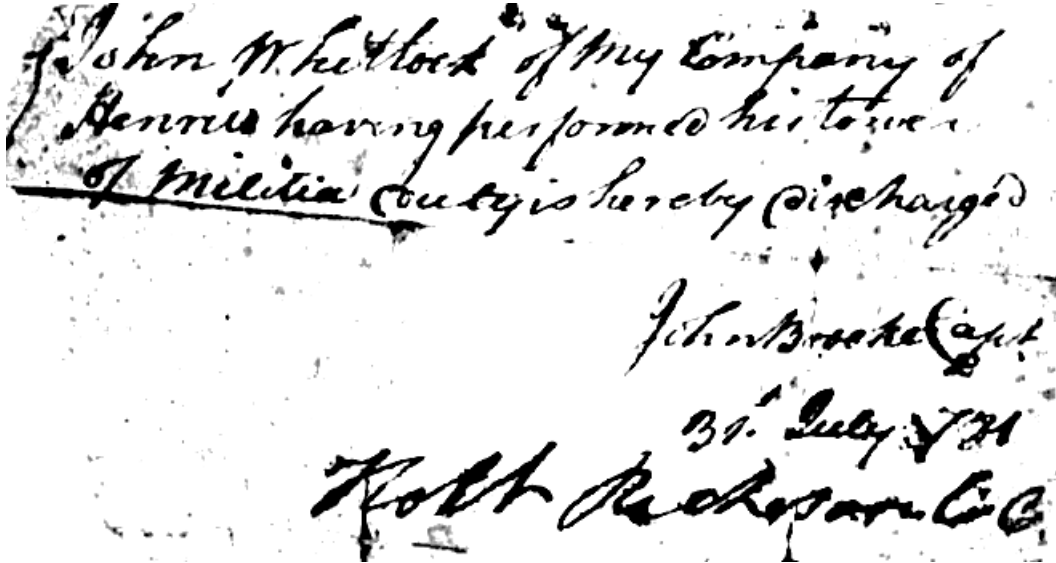 John Whitlock of My Company of
Henrico having performed his tower
of Militia duty is hereby discharged
John Brooke Capt
31st July 1781
Holt Richeson